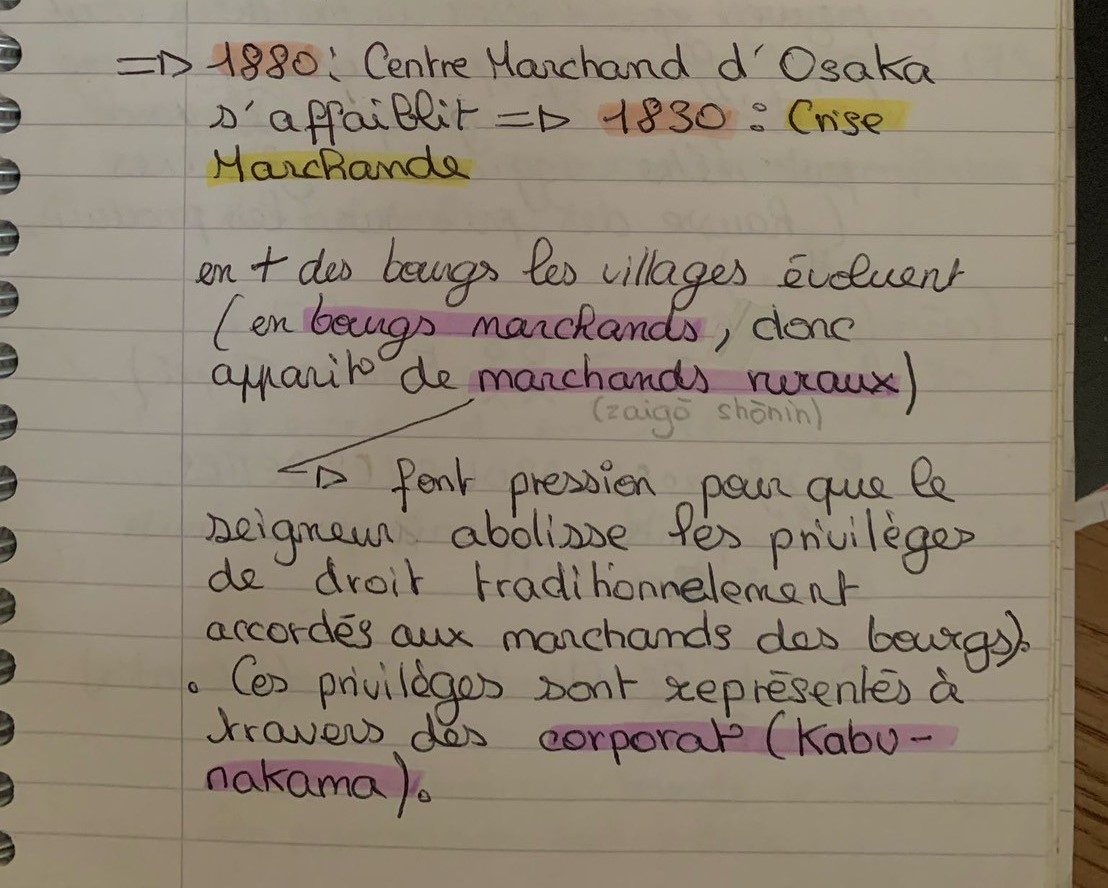 => 1880 : Centre Marchand d'Osaka
s'affaiblit => 1830 : Crise
Marchande
en + des bourgs les villages évoluent
(en bourgs marchands, donc
apparit° de marchands ruraux)
(zaigō shōnin)
-> font pression pour que le
seigneur abolisse les privilèges
de droit traditionnelement
accordés aux marchands des bourgs).
. Ces privilèges sont représentés à
travers des corporat° (Kabu-
nakama).